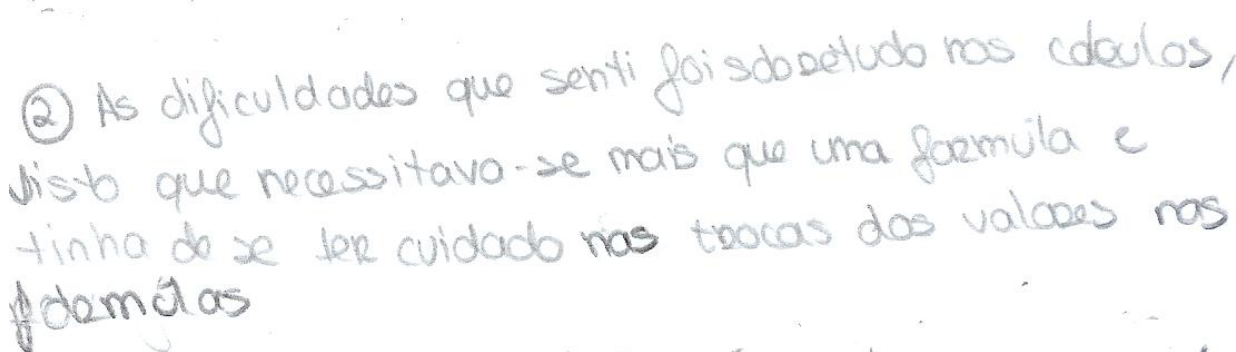 ② As dificuldades que senti foi sobretudo nos calculos,
visto que necessitava-se mais que uma formula e
tinha de se ter cuidado nas trocas dos valores nas
fórmulas